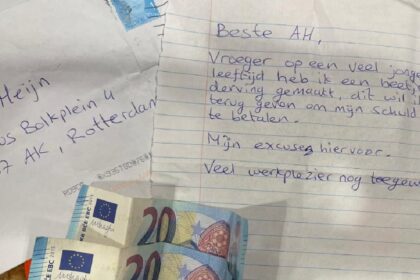 Heijn
Bolkplein 4
AK, Rotterdam
Beste AH,
Vroeger op een veel jong
leeftijd heb ik een beetj
derving gemaakt, dit wil
terug geven om mijn schuld
te betalen.
Mijn excuses hiervoor.
Veel werkplezier nog toegew
20
20